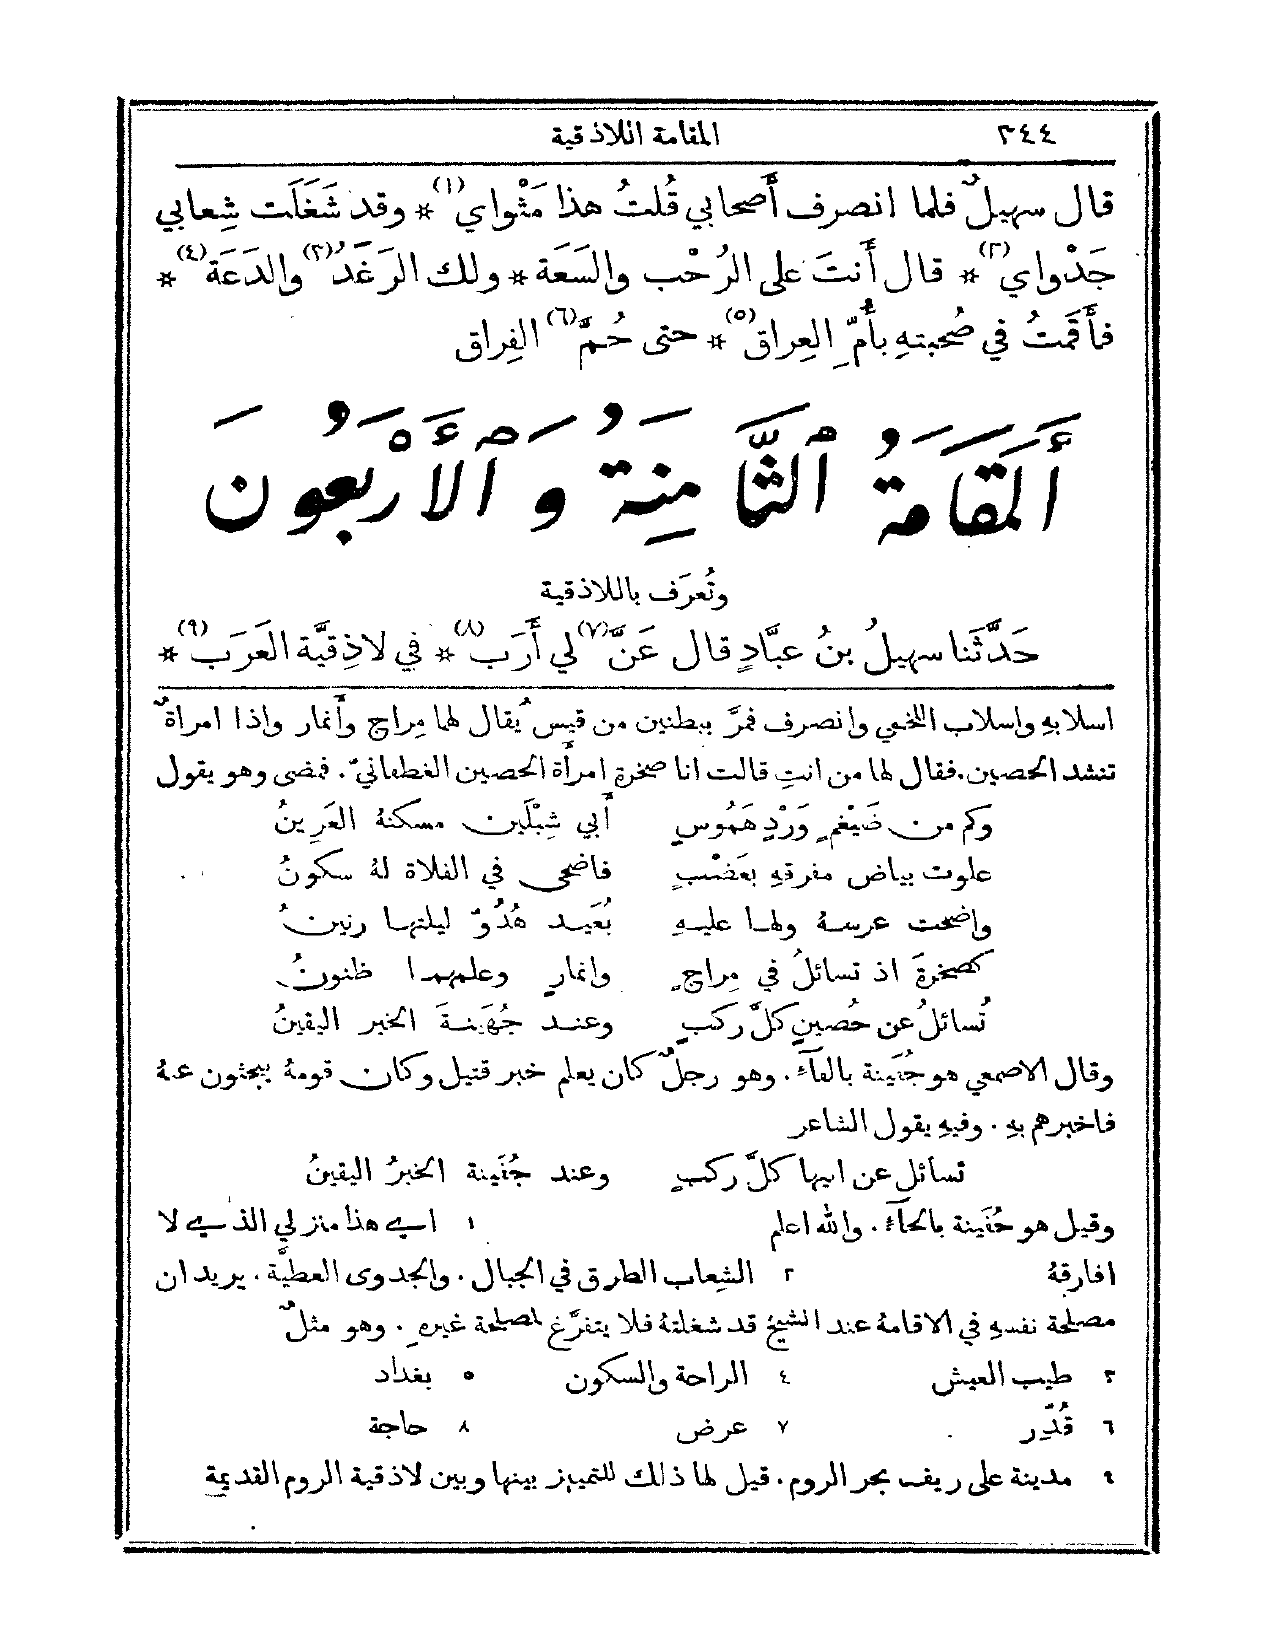 ٣٤٤ المقامة اللاذقية
قال سهيلٌ فلما انصرف أَصحابي قُلتُ هذا مَثْواي(١) * وقد شَغَلَت شِعابي
جَدْواي(٢) * قال أَنتَ على الرُحْب والسَعَة * ولك الرَغَدُ(٣) والدَعَة(٤) *
فأَقمتُ في صُحبتهِ بأُمِّ العِراق(٥) * حتى حُمَّ(٦) الفِراق
أَلمَقَامَةُ ٱلثَّامِنَةُ وَٱلأَرْبَعُونَ
وتُعرَف باللاذقية
حَدَّثَنا سهيلُ بنُ عبَّادٍ قال عَنَّ(٧) لي أَرَب(٨) * في لاذِقيَّة العَرَب(٩) *
اسلابهِ واسلاب اللخمي وانصرف فمرَّ ببطنين من قيس يُقال لها مِراج وأَنمار واذا امراةٌ
تنشد الحصين. فقال لها من انتِ قالت انا صخرة امرأة الحصين الغطفاني. فمضى وهو يقول
وكم من ضَيغمٍ وَرْدٍ هَمُوسٍ أَبي شِبلَين مسكنهُ العَرِينُ
علوت بياض مفرقهِ بعَضْبٍ فاضحى في الفلاة لهُ سكونُ
واضحت عرسهُ ولها عليهِ بُعَيد هُدُوّ ليلتها رنينُ
كصخرةَ اذ تسائلُ في مِراجٍ وانمارٍ وعلمهما ظنونُ
تُسائلُ عن حُصينٍ كلَّ ركبٍ وعند جُهَينةَ الخبر اليقينُ
وقال الاصمعي هو جُفَينة بالفآء. وهو رجلٌ كان يعلم خبر قتيل وكان قومهُ يبحثون عنهُ
فاخبرهم بهِ. وفيهِ يقول الشاعر
تسائل عن ابيها كلَّ ركبٍ وعند جُفَينة الخبرُ اليقينُ
وقيل هو حُفَينة بالحآء. والله اعلم ١ اي هذا منزلي الذي لا
افارقهُ ٢ الشِعاب الطرق في الجبال. والجدوى العطيَّة. يريد ان
مصلحة نفسهِ في الاقامة عند الشيخ قد شغلتهُ فلا يتفرَّغ لمصلحة غيرهِ. وهو مثلٌ
٣ طيب العيش ٤ الراحة والسكون ٥ بغداد
٦ قُدِّر ٧ عرض ٨ حاجة
٩ مدينة على ريف بحر الروم. قيل لها ذلك للتمييز بينها وبين لاذقية الروم القديمة